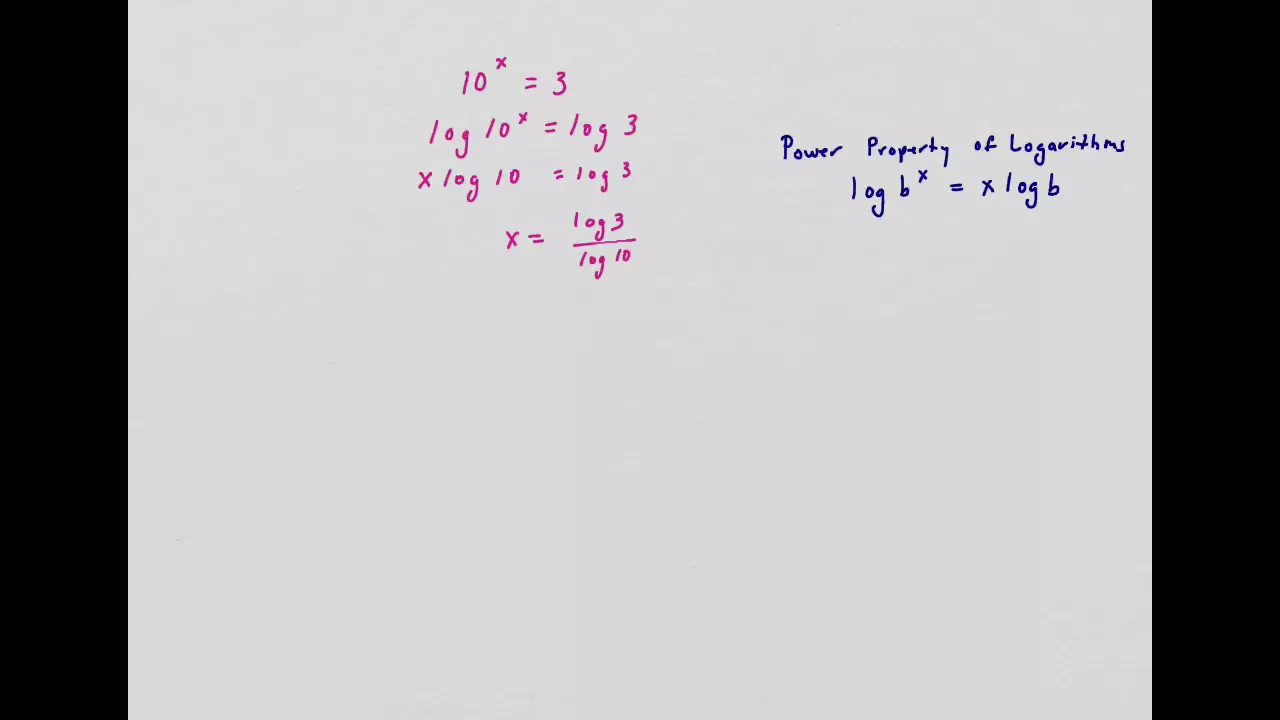 10^x = 3
log 10^x = log 3
x log 10 = log 3
x = log 3 / log 10
Power Property of Logarithms
log b^x = x log b